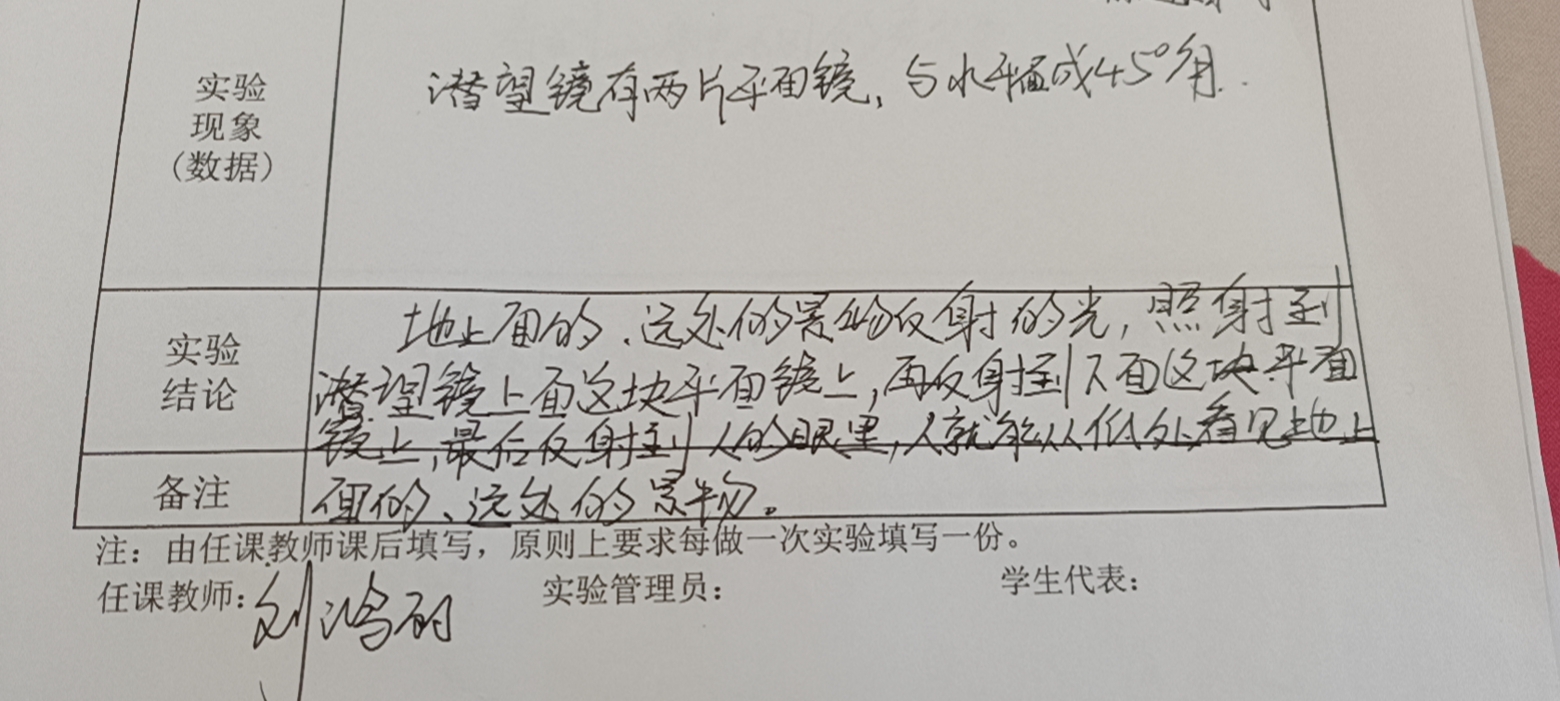 实验
现象
(数据)
潜望镜有两片平面镜，与水平面成45°角.
实验
结论
地上面的、远处的景物反射的光，照射到
潜望镜上面这块平面镜上，再反射到下面这块平面
镜上，最后反射到人的眼里，人就能从低处看见地上
面的、远处的景物。
备注
注：由任课教师课后填写，原则上要求每做一次实验填写一份。
任课教师：刘鸿 实验管理员： 学生代表：